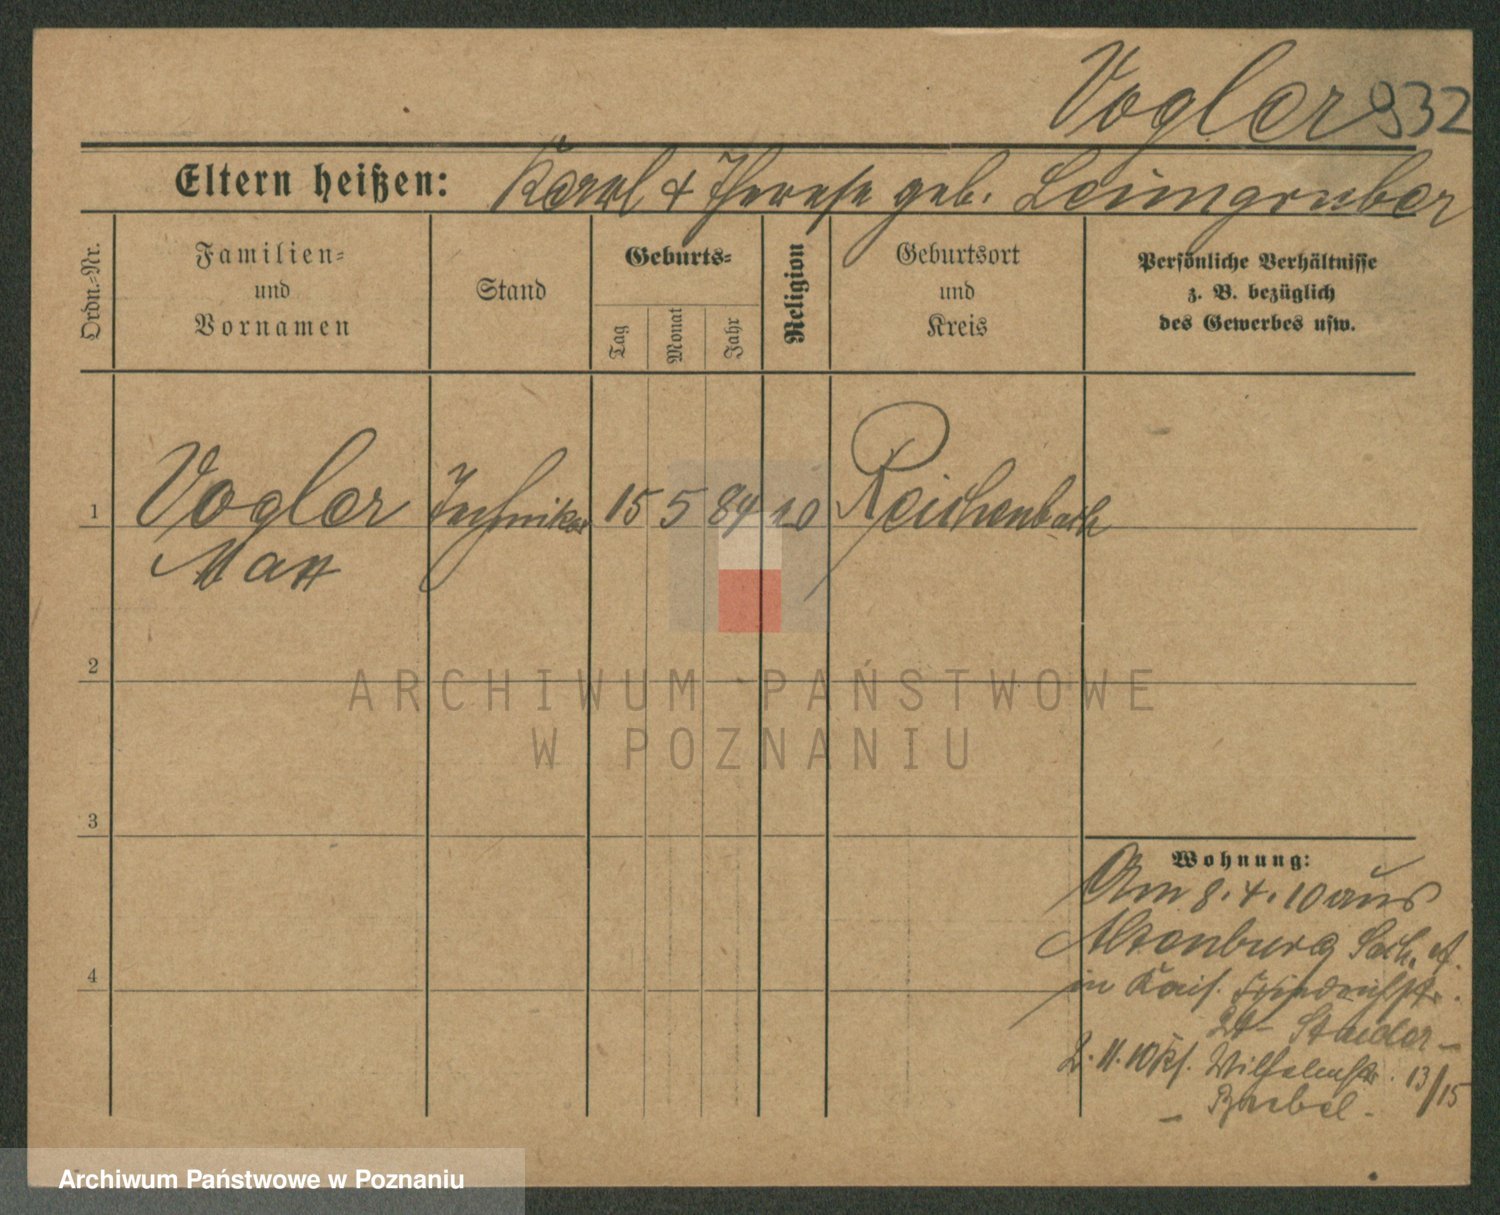 Vogler 932
Eltern heißen: Karl & Therese geb. Leimgruber
Ordn.-Nr.
Familien-
und
Vornamen
Stand
Geburts-
Tag
Monat
Jahr
Religion
Geburtsort
und
Kreis
Persönliche Verhältnisse
z. B. bezüglich
des Gewerbes usw.
1 Vogler Techniker 15 5 84 Reichenbach
Max
2
3
4
Wohnung:
Am 8.4.10 aus
Altenburg Sach.
in Kais. Friedrichstr.
Staidler -
2.11.10 Wilhelmstr. 13/15
ARCHIWUM PAŃSTWOWE
W POZNANIU
Archiwum Państwowe w Poznaniu